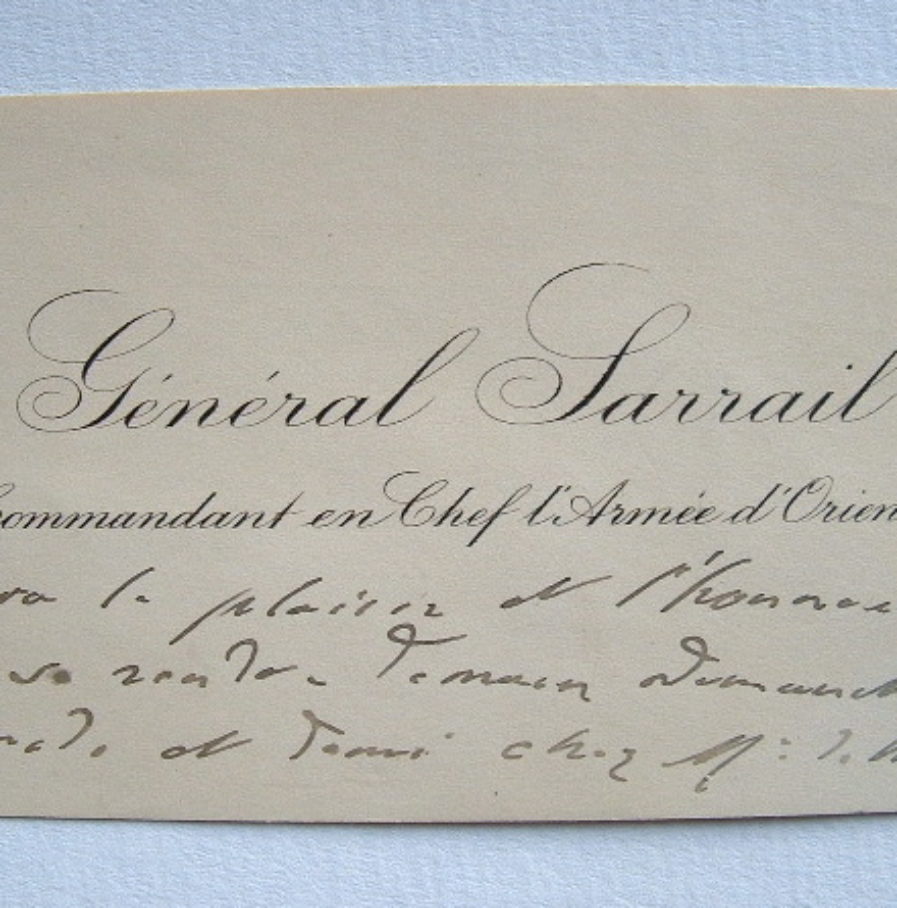 Général Sarrail
Commandant en Chef l'Armée d'Orien
ra le plaisir et l'honneu
se rendre demain Dimanch
et demi chez Mr de